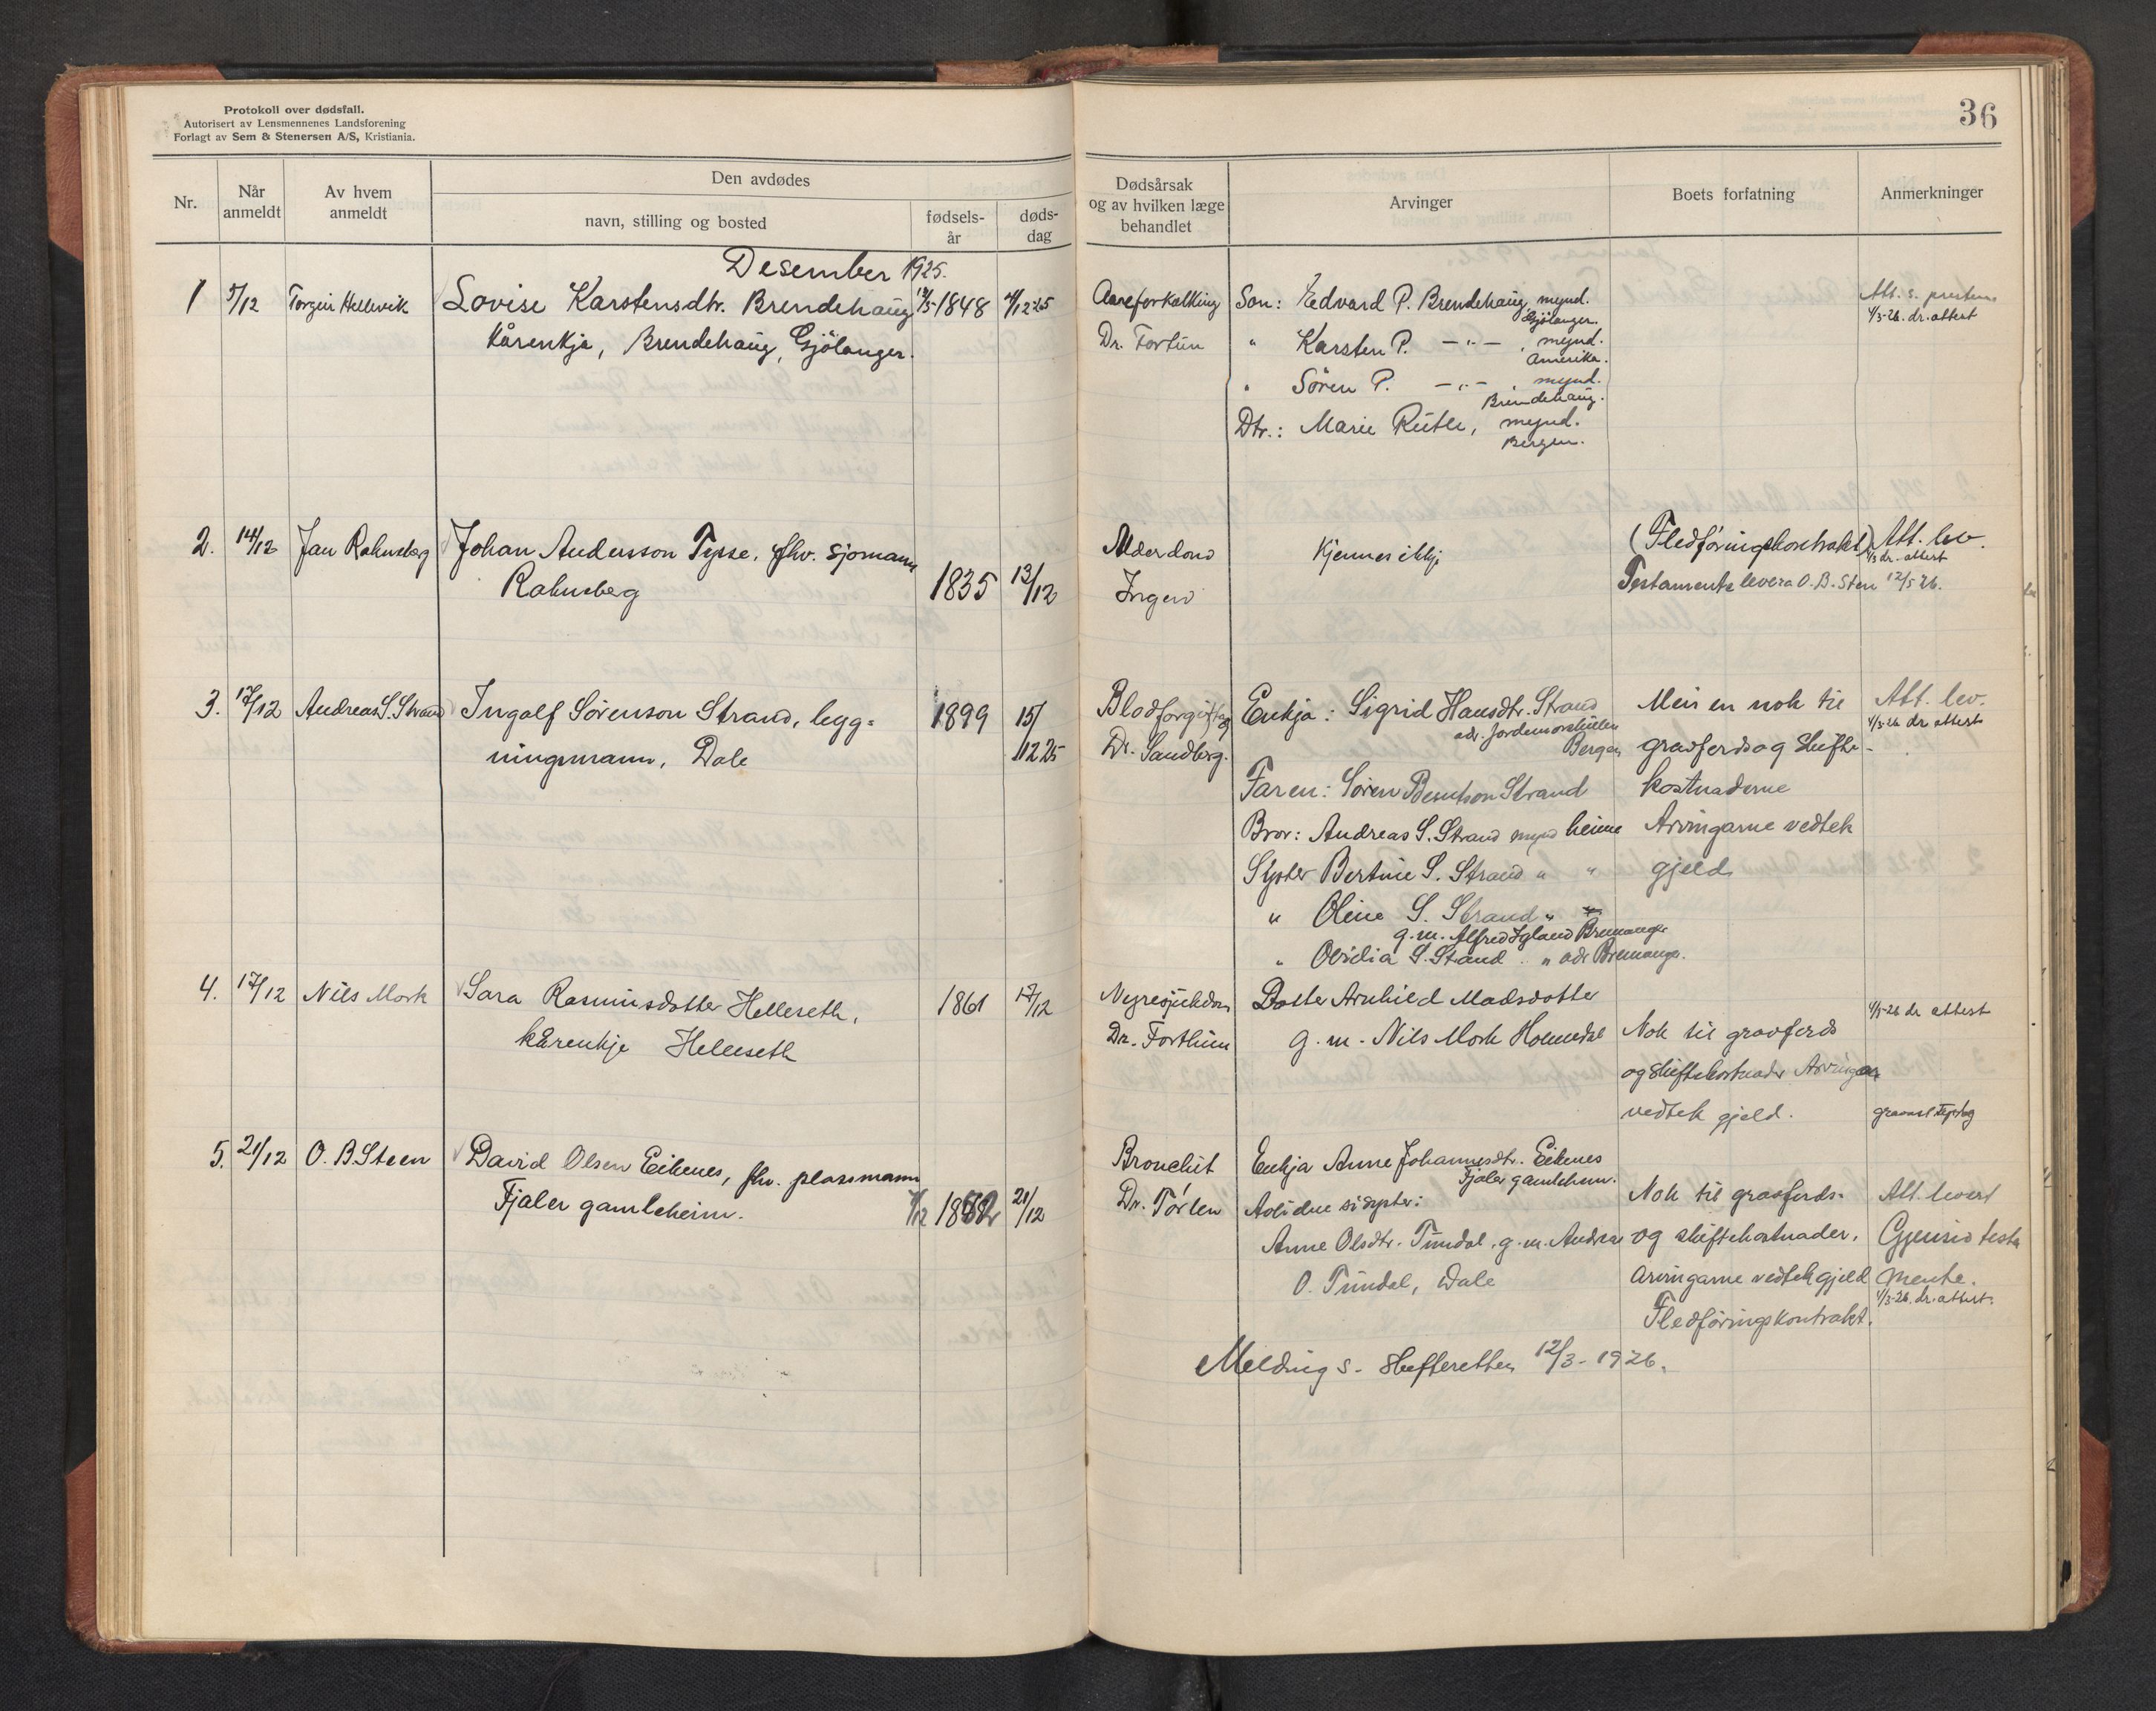 Protokoll over dødsfall.
Autorisert av Lensmennenes Landsforening
Forlagt av Sem & Stenersen A/S, Kristiania.
36
Nr.
Når anmeldt
Av hvem anmeldt
Den avdødes
navn, stilling og bosted
fødsels-år
døds-dag
Dødsårsak og av hvilken læge behandlet
Arvinger
Boets forfatning
Anmerkninger
Desember 1925.
1 5/12 Torgeir Hellevik Lovise Karstensdtr. Brendehaug 1848 4/12 25
Kårenkja, Brendehaug, Gjölanger.
Aareforkalking
Dr. Fortun
Son: Edvard P. Brendehaug, mynd.
Gjölanger.
" Karsten P. -"- , mynd.
Amerika.
" Sören P. -"- , mynd.
Brendehaug.
Dtr.: Marie Rutle, mynd.
Bergen.
Att. s. presten
1/3-26. dr. attest
2. 14/12 Jan Rahnsberg Johan Andersson Tysse, fhv. sjomann
Rahnsberg 1835 13/12
Alderdom
Ingen
Kjennes ikkje
(Fledføringskontrakt)
Testamente levera O. B. Sten 12/5 26.
Att. lev.
1/3 dr. attest
3. 17/12 Andreas S. Strand Ingolf Sörenson Strand, legg-
ningsmann, Dale 1899 15/12 25
Blodforgiftng
Dr. Sandberg.
Enkja: Sigrid Hansdtr. Strand
adr. Jordmorskulen
Bergen
Faren: Sören Bentson Strand
Bror: Andreas S. Strand mynd heime
Syster Bertine S. Strand " "
" Oline S. Strand "
g. m. Alfred Igland Bremanger
" Ovidia S. Strand " adr Bremanger.
Meir en nok til
gravferds og skifte-
kostnaderne
Arvingarne vedtek
gjeld
Att. lev.
1/3-26 dr. attest
4. 17/12 Nils Mork Sara Rasmusdotter Helleseth,
kårenkje Helleseth 1861 17/12
Nyresjukdom
Dr. Forthun
Dotter Arnhild Madsdotter
g. m. Nils Mork Holmedal
Nok til gravferds
og skiftekostnader Arvingar
vedtek gjeld.
1/3-26 dr attest
5. 21/12 O. B. Steen David Olsen Eikenes, fhv. plassmann
Fjaler gamleheim. 21/12
Bronchit
Dr. Torlen
Enkja Anne Johannesdtr. Eikenes
Fjaler gamleheim.
Avlidne si syster:
Anne Olsdtr. Tundal, g. m. Andreas
O. Tundal, Dale
Nok til gravferds-
og skiftekostnader.
Arvingarne vedtek gjeld
Fledføringskontrakt.
Att. levert
Gjensid testa
mente.
1/3-26. dr. attest.
Melding s. skifteretten 12/3-1926.